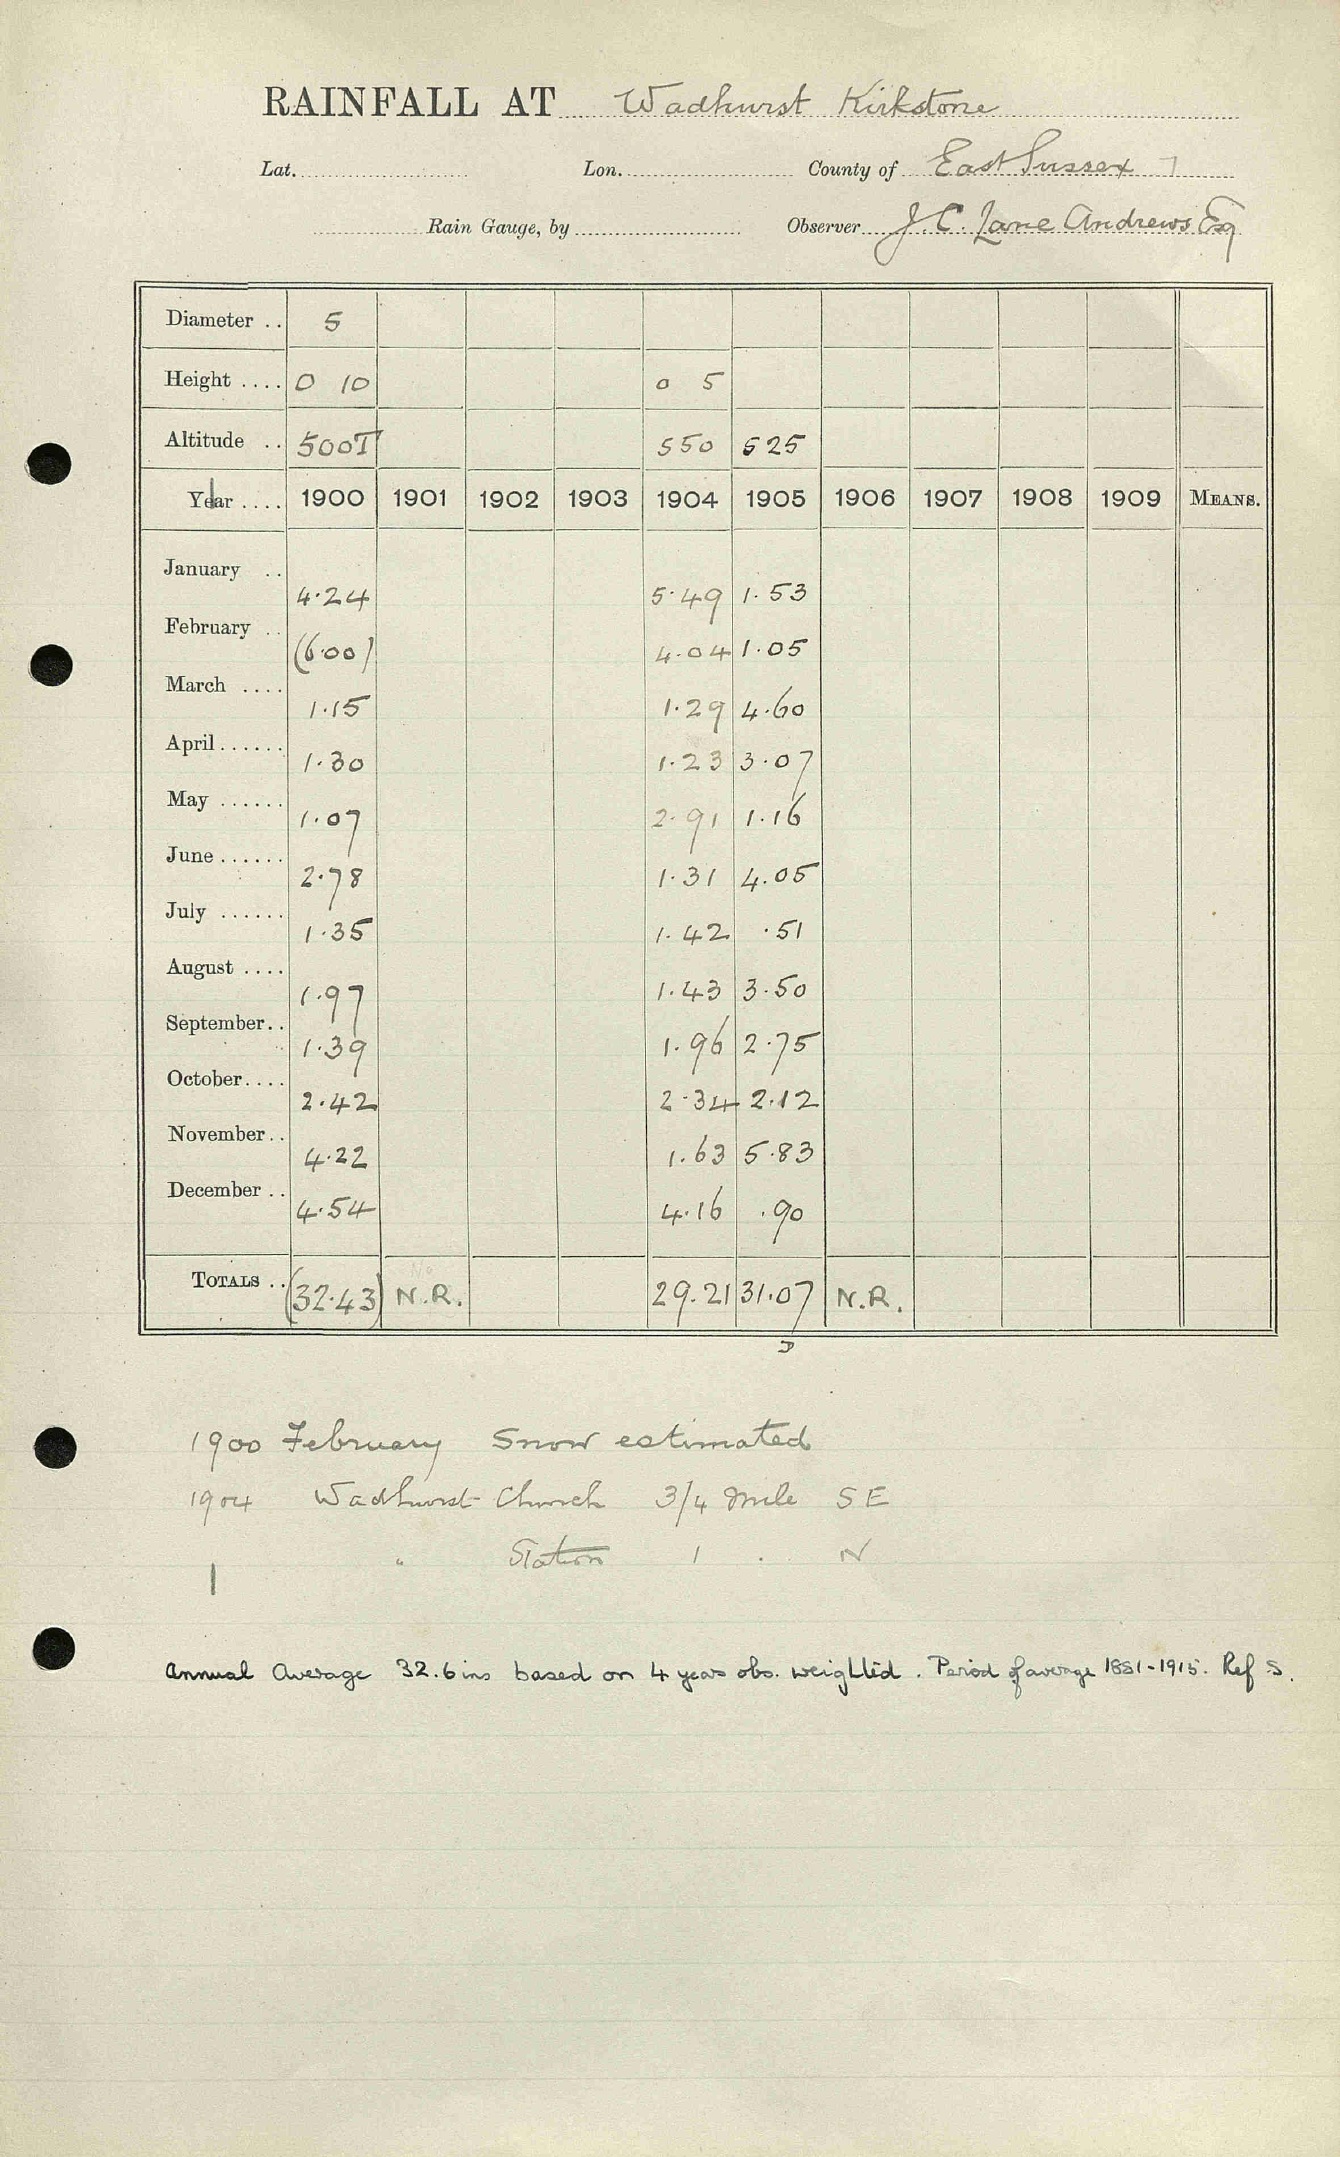 RAINFALL AT Wadhurst Kirkstone
Lat. Lon. County of East Sussex 7
Rain Gauge, by Observer J. C. Lane Andrews Esq
Diameter .. 5
Height .... 0 10 0 5
Altitude .. 500T 550 525
Year .... 1900 1901 1902 1903 1904 1905 1906 1907 1908 1909 MEANS.
January .. 4.24 5.49 1.53
February .. (6.00) 4.04 1.05
March .... 1.15 1.29 4.60
April ...... 1.30 1.23 3.07
May ...... 1.07 2.91 1.16
June ...... 2.78 1.31 4.05
July ...... 1.35 1.42 .51
August .... 1.97 1.43 3.50
September.. 1.39 1.96 2.75
October.... 2.42 2.34 2.12
November.. 4.22 1.63 5.83
December .. 4.54 4.16 .90
TOTALS .. (32.43) N.R. 29.21 31.07 N.R.
1900 February Snow estimated
1904 Wadhurst Church 3/4 Mile SE
" Station 1 . N
Annual Average 32.6 ins based on 4 years obs. weighted. Period of average 1881-1915. Ref S.